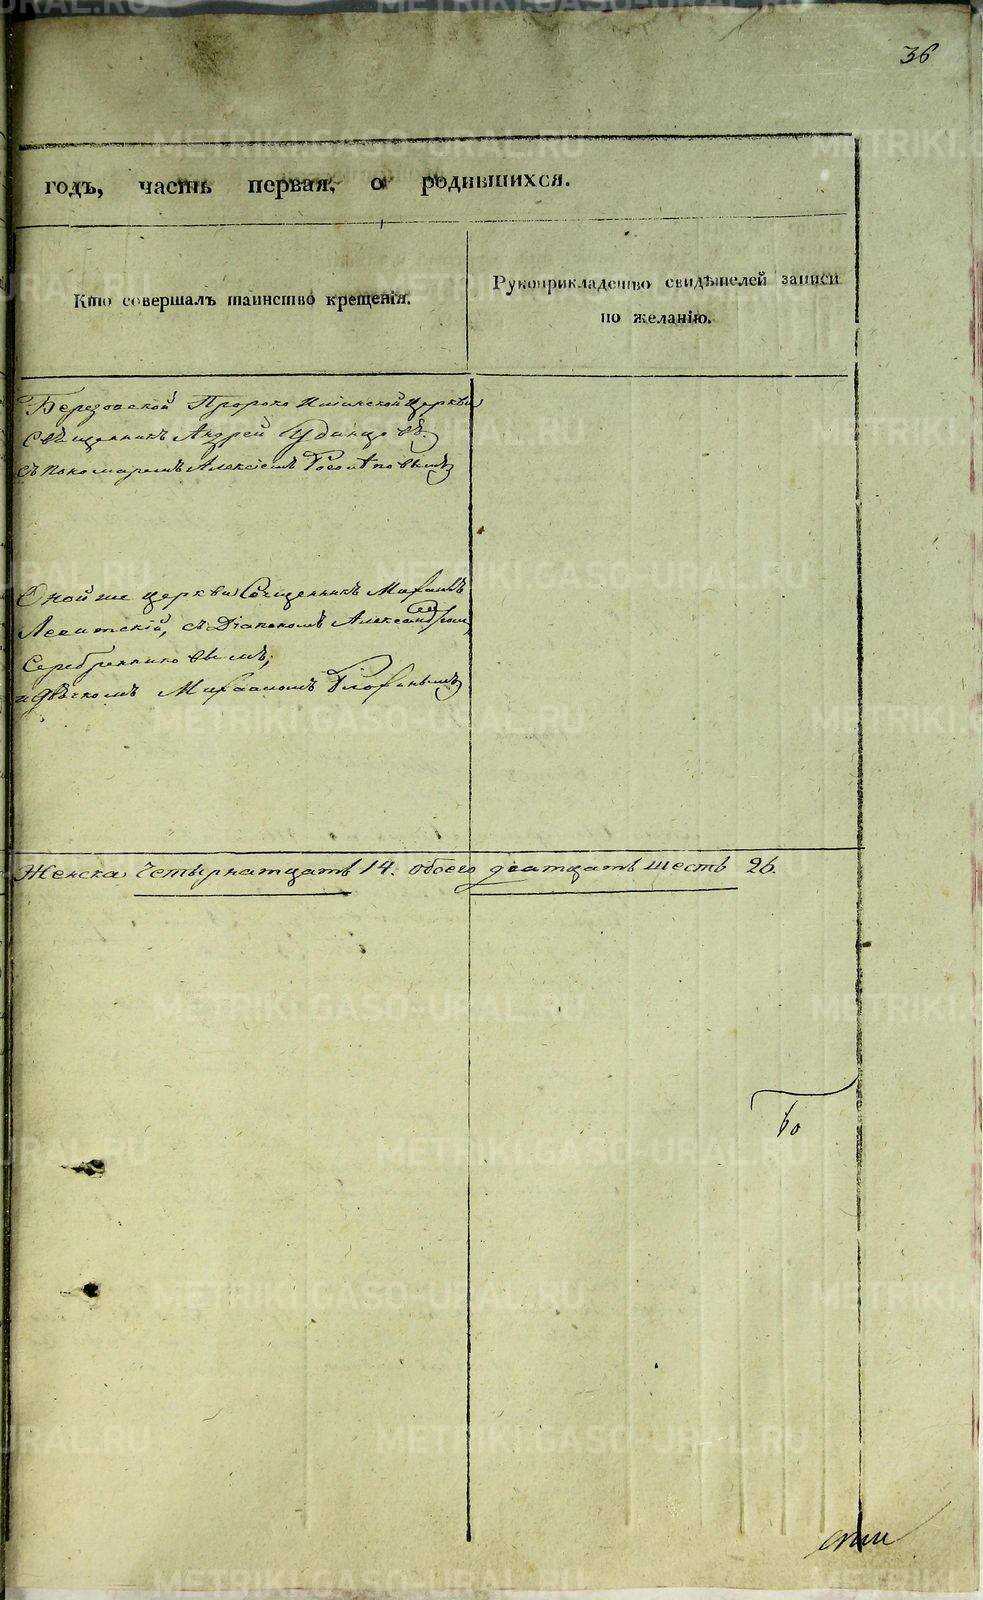 36
годъ, часть первая, о родившихся.
Кто совершалъ таинство крещенія.
Рукоприкладство свидѣтелей записи
по желанію.
Березовской Пророко Илiинской церкви
Священникъ Андрей Удинцовъ.
съ Пономаремъ Алексiемъ
Оной же церкви Священникъ Михаилъ
Левитскiй, съ Дiакономъ Александромъ
Серебренниковымъ,
и дьячкомъ Михаиломъ
Женска четырнатцать 14. обоего дватцать шесть 26.
METRIKI.GASO-URAL.RU